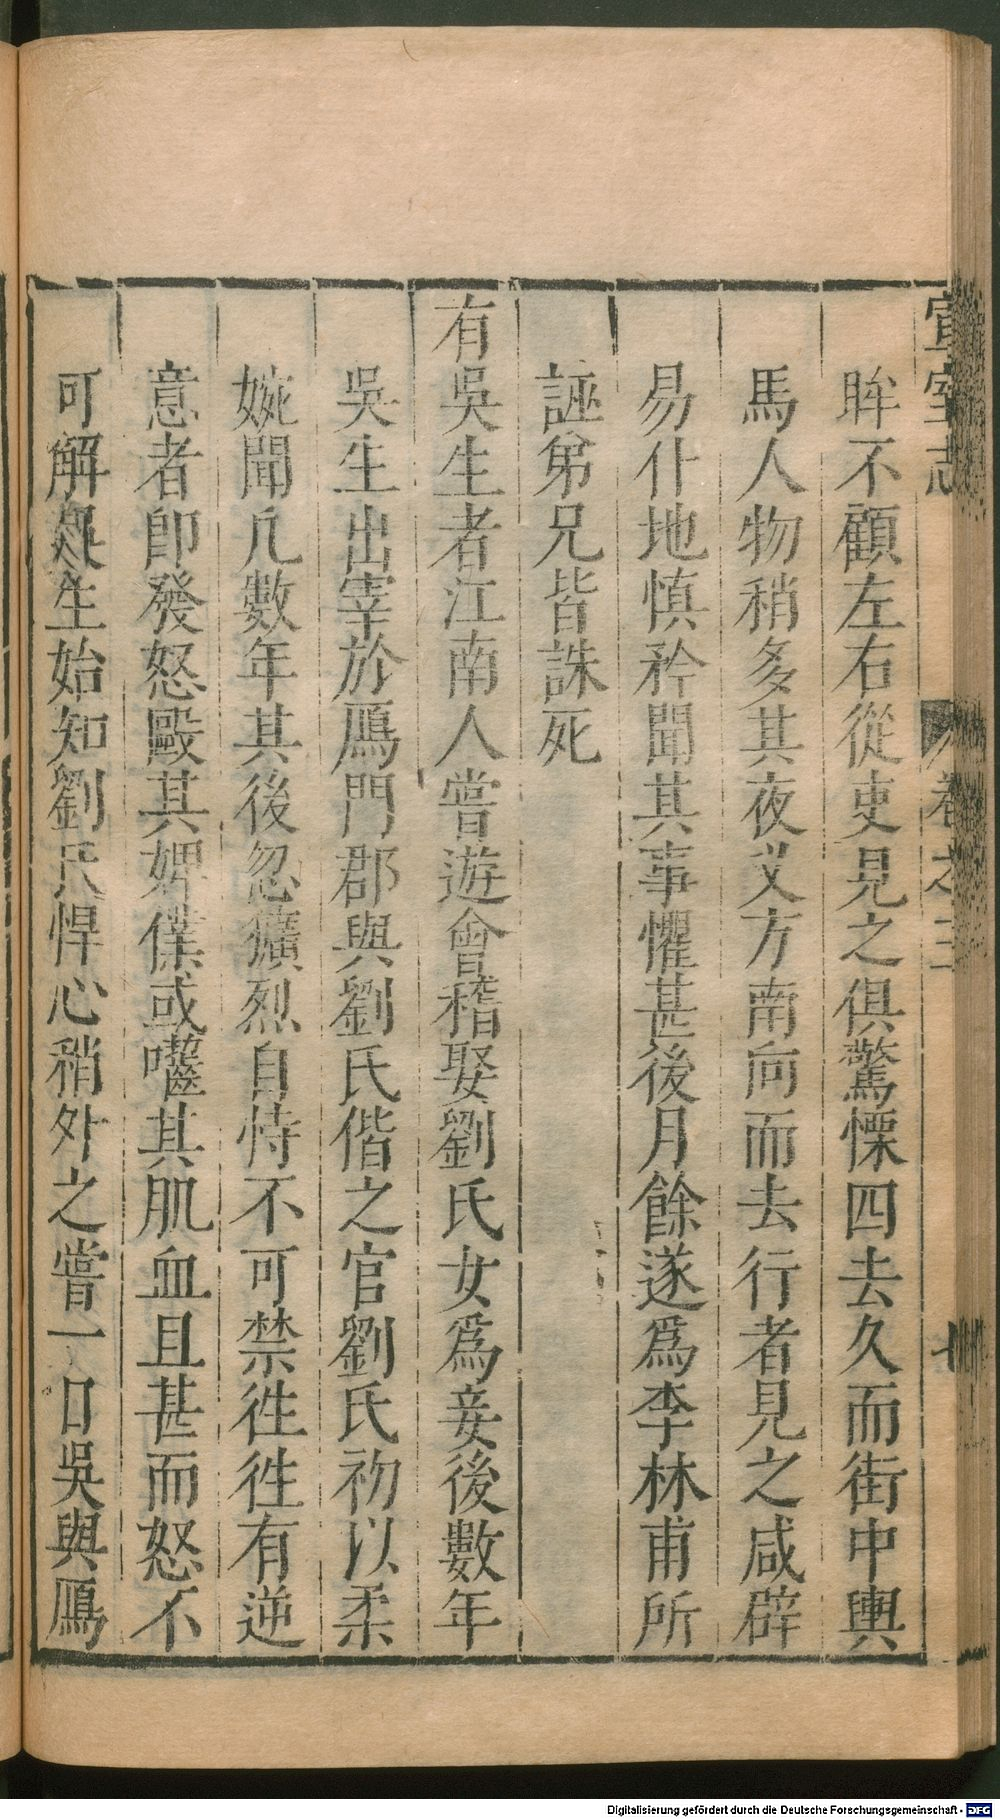 宣室志 卷之三 七
眸不顧左右從吏見之俱驚慄四去久而街中輿
馬人物稍多其夜叉方南向而去行者見之咸辟
易仆地慎矜聞其事懼甚後月餘遂爲李林甫所
誣弟兄皆誅死
有吳生者江南人嘗遊會稽娶劉氏女爲妾後數年
吳生出宰於鴈門郡與劉氏偕之官劉氏初以柔
婉聞凡數年其後忽獷烈自恃不可禁徃徃有逆
意者卽發怒毆其婢僕或囓其肌血且甚而怒不
可解吳生始知劉氏悍心稍外之嘗一日吳與鴈
Digitalisierung gefördert durch die Deutsche Forschungsgemeinschaft - DFG